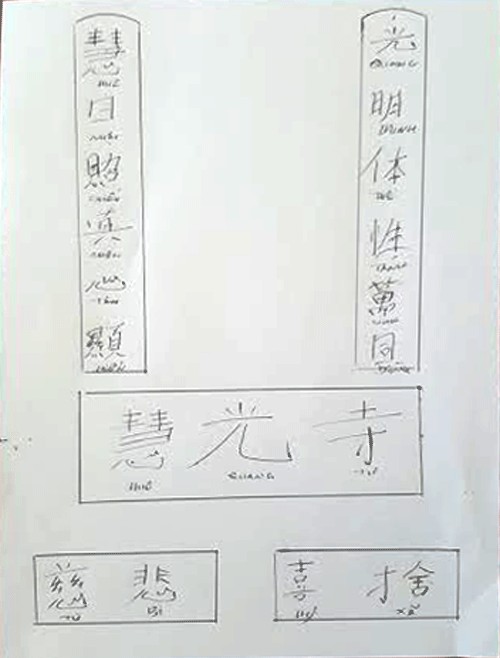 慧
HUỆ
日
照
CHIẾU
眞
心
TÂM
顯
光
QUANG
明
MINH
体
THỂ
性
TÁNH
萬
同
慧 光 寺
HUỆ QUANG TỰ
慈 悲
TỪ BI
喜 捨
HỶ XẢ